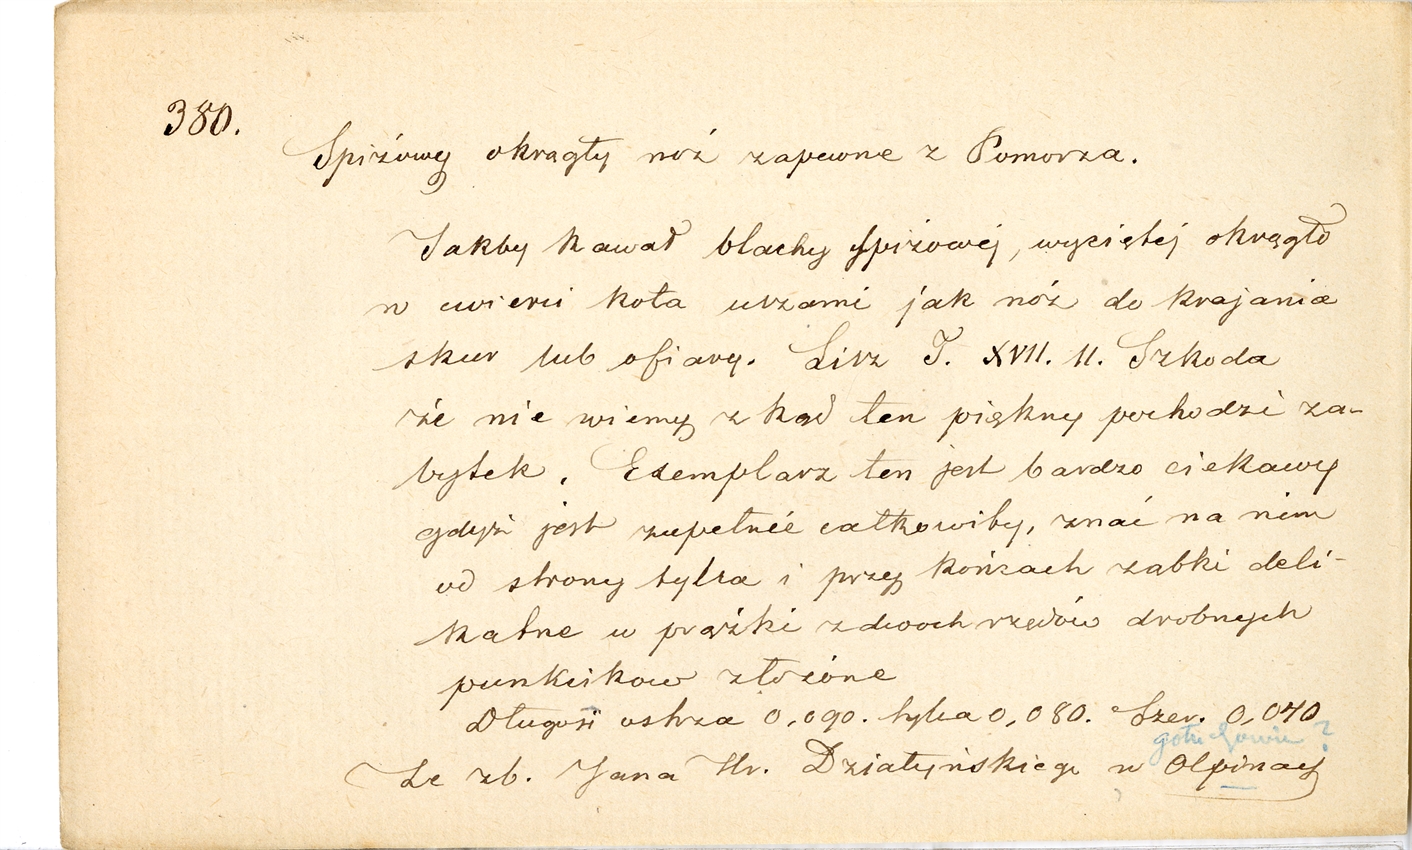 380.
Spiżowy okrągły nóż zapewne z Pomorza.
Jakby kawał blachy spiżowéj, wyciętéj okrągło
w cwierci koła uszami jak nóż do krajania
skur lub ofiary. Litz T. XVII. 11. Szkoda
że nie wiemy z kąd ten piękny pochodzi za-
bytek. Exemplarz ten jest bardzo ciekawy
gdyż jest zupełnie całkowity, znać na nim
od strony tylca i przy końcach zabki deli-
katne w prążki z dwoch rzędów drobnych
punkcikow złożóne
Długość ostrza 0,090. tylca 0,080. Szer. 0,040
?
Ze zb. Jana Hr. Działyńskiego w Olpinach